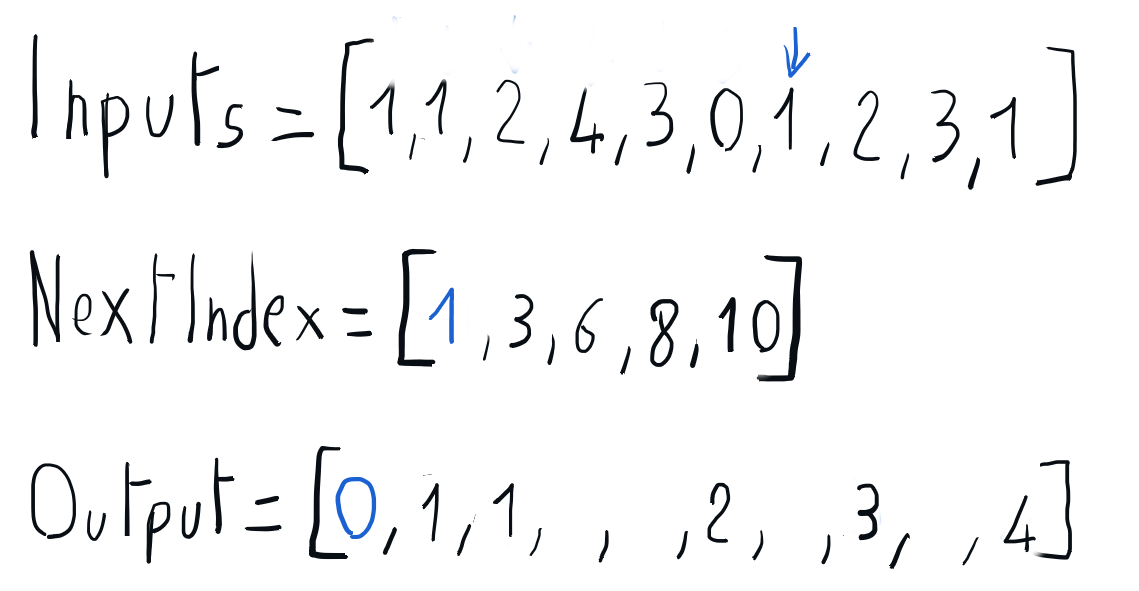 Inputs = [1,1,2,4,3,0,1,2,3,1]
NextIndex = [1,3,6,8,10]
Output = [0,1,1, , ,2, ,3, ,4]